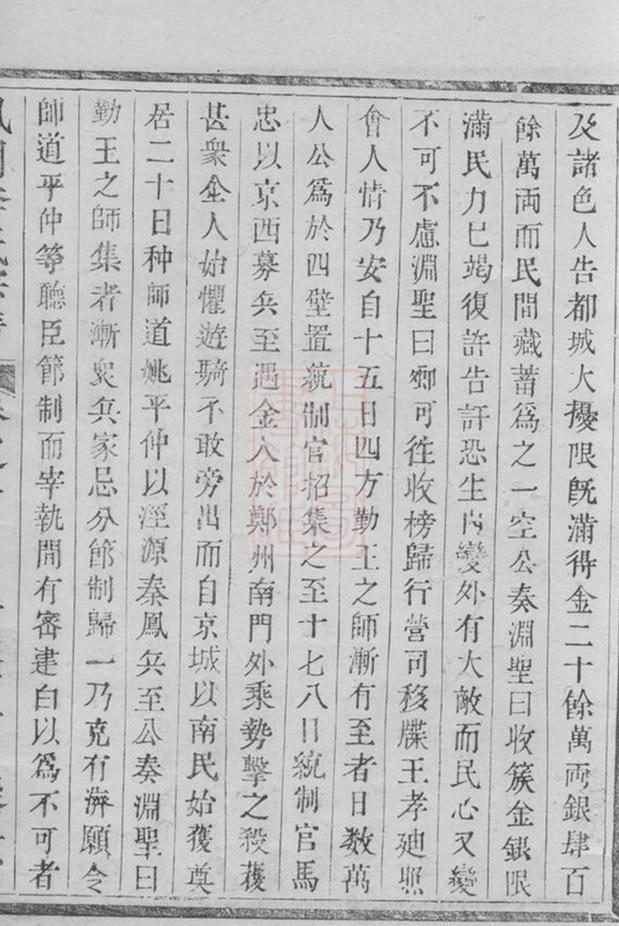 及諸色人告都城大擾限旣滿得金二十餘萬両銀肆百
餘萬両而民間藏蓄爲之一空公奏淵聖曰收簇金銀限
滿民力已竭復許告訐恐生內變外有大敵而民心又變
不可不慮淵聖曰卿可徃收榜歸行營司移牒王孝廸照
會人情乃安自十五日四方勤王之師漸有至者日数萬
人公爲於四壁置統制官招集之至十七八日統制官馬
忠以京西募兵至遇金人於鄭州南門外乘勢擊之殺獲
甚衆金人始懼遊騎不敢旁出而自京城以南民始獲奠
居二十日种師道姚平仲以涇源秦鳳兵至公奏淵聖曰
勤王之師集者漸衆兵家忌分節制歸一乃克有濟願令
師道平仲等聽臣節制而宰執間有密建白以爲不可者